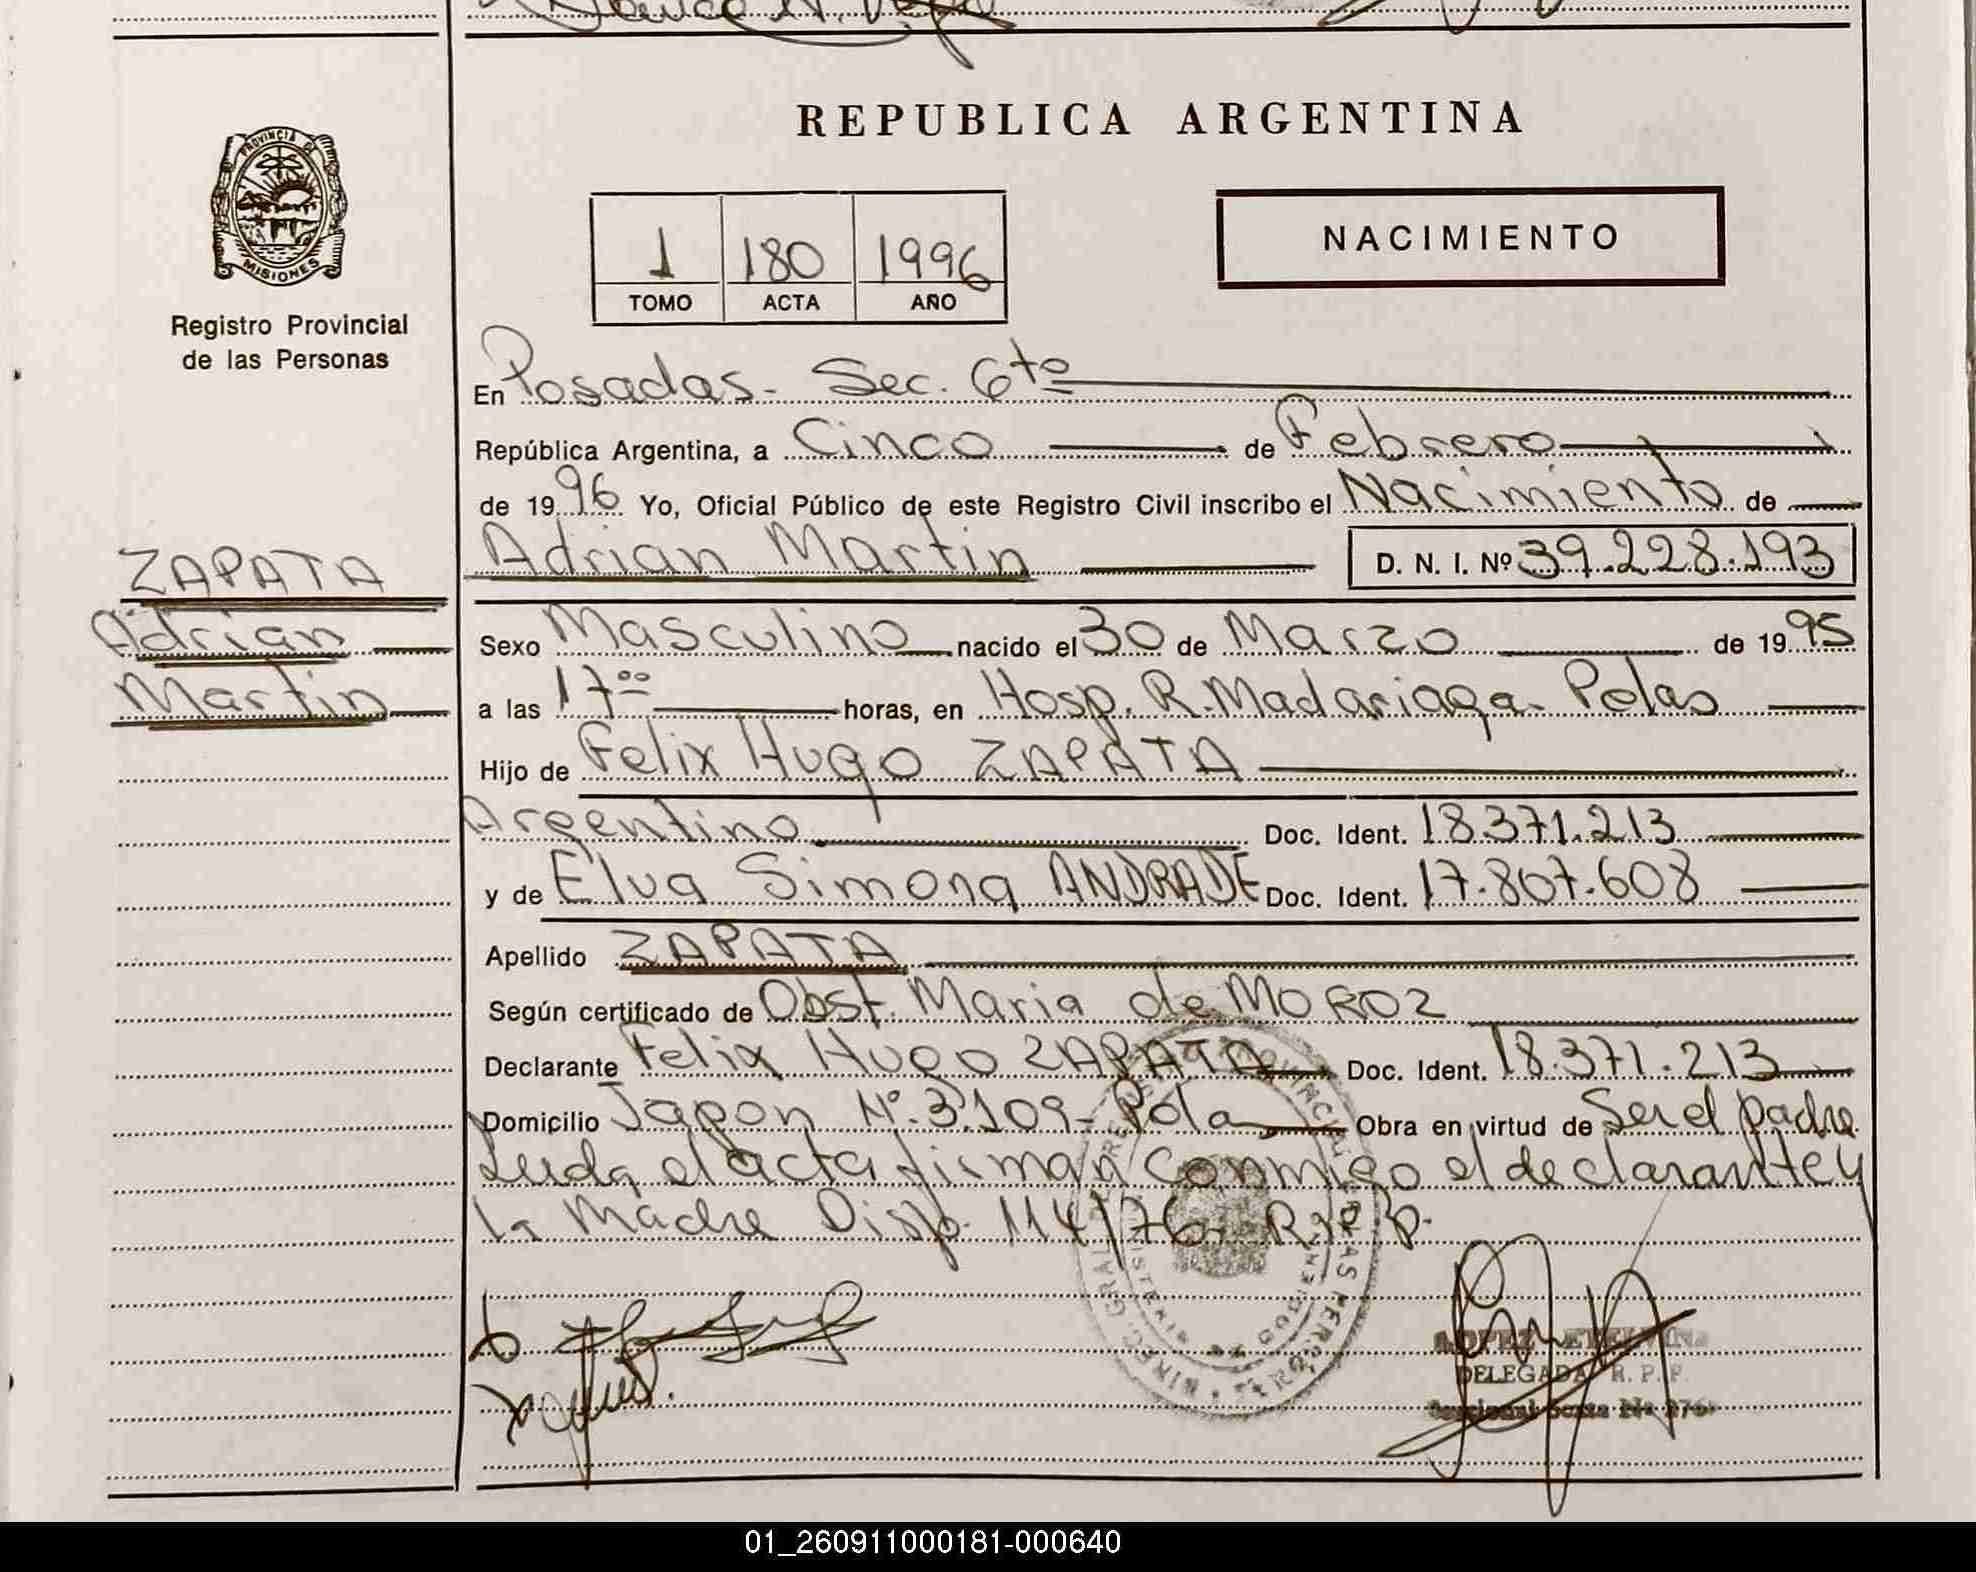 REPUBLICA ARGENTINA
PROVINCIA DE
MISIONES
Registro Provincial
de las Personas
1 180 1996
TOMO ACTA AÑO
NACIMIENTO
En Posadas - Sec. 6to
República Argentina, a Cinco de Febrero
de 1996 Yo, Oficial Público de este Registro Civil inscribo el Nacimiento de
Adrian Martin D. N. I. Nº 39.228.193
ZAPATA
Adrian
Martin
Sexo Masculino nacido el 30 de Marzo de 1995
a las 17 00 horas, en Hosp. R. Madariaga - Pdas
Hijo de Felix Hugo ZAPATA
Argentino Doc. Ident. 18.371.213
y de Elva Simona ANDRADE Doc. Ident. 17.807.608
Apellido ZAPATA
Según certificado de Obst. Maria de MOROZ
Declarante Felix Hugo ZAPATA Doc. Ident. 18.371.213
Domicilio Japon Nº 3.109 - Pda Obra en virtud de Ser el padre
Leida el acta firman conmigo el declarante y
la Madre Disp. 114/76 - R.P.P.
LOPEZ ETELVINA
DELEGADA R. P. P.
Seccional Sexta Nº 276
01_260911000181-000640